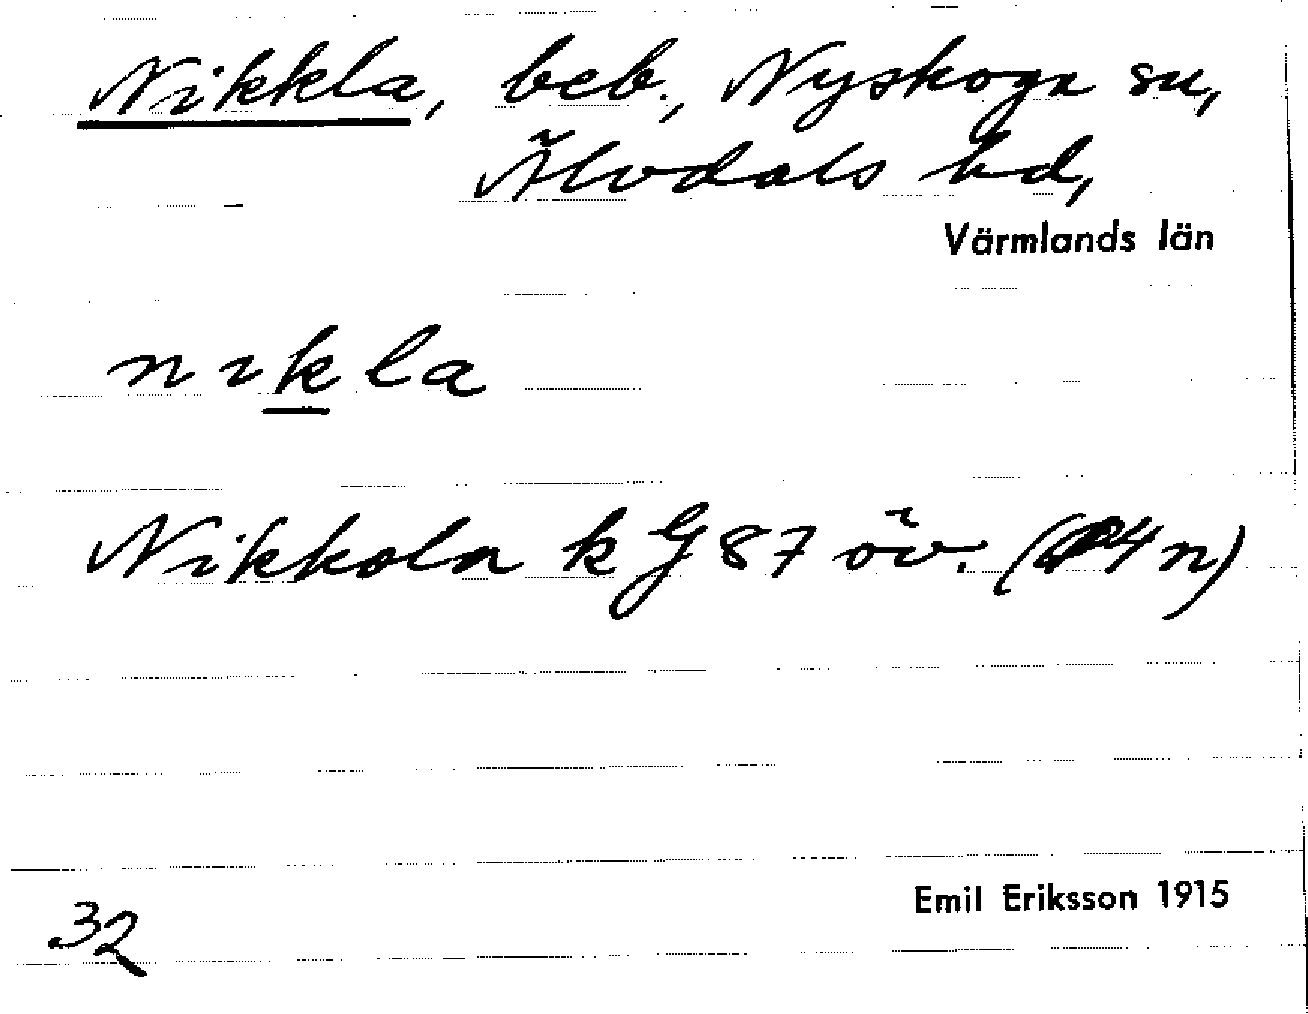 Nikkla, beb., Nyskoga sn,
Älvdals hd,
Värmlands län
nikla
Nikkola k G 87 öv. (4 n)
Emil Eriksson 1915
32